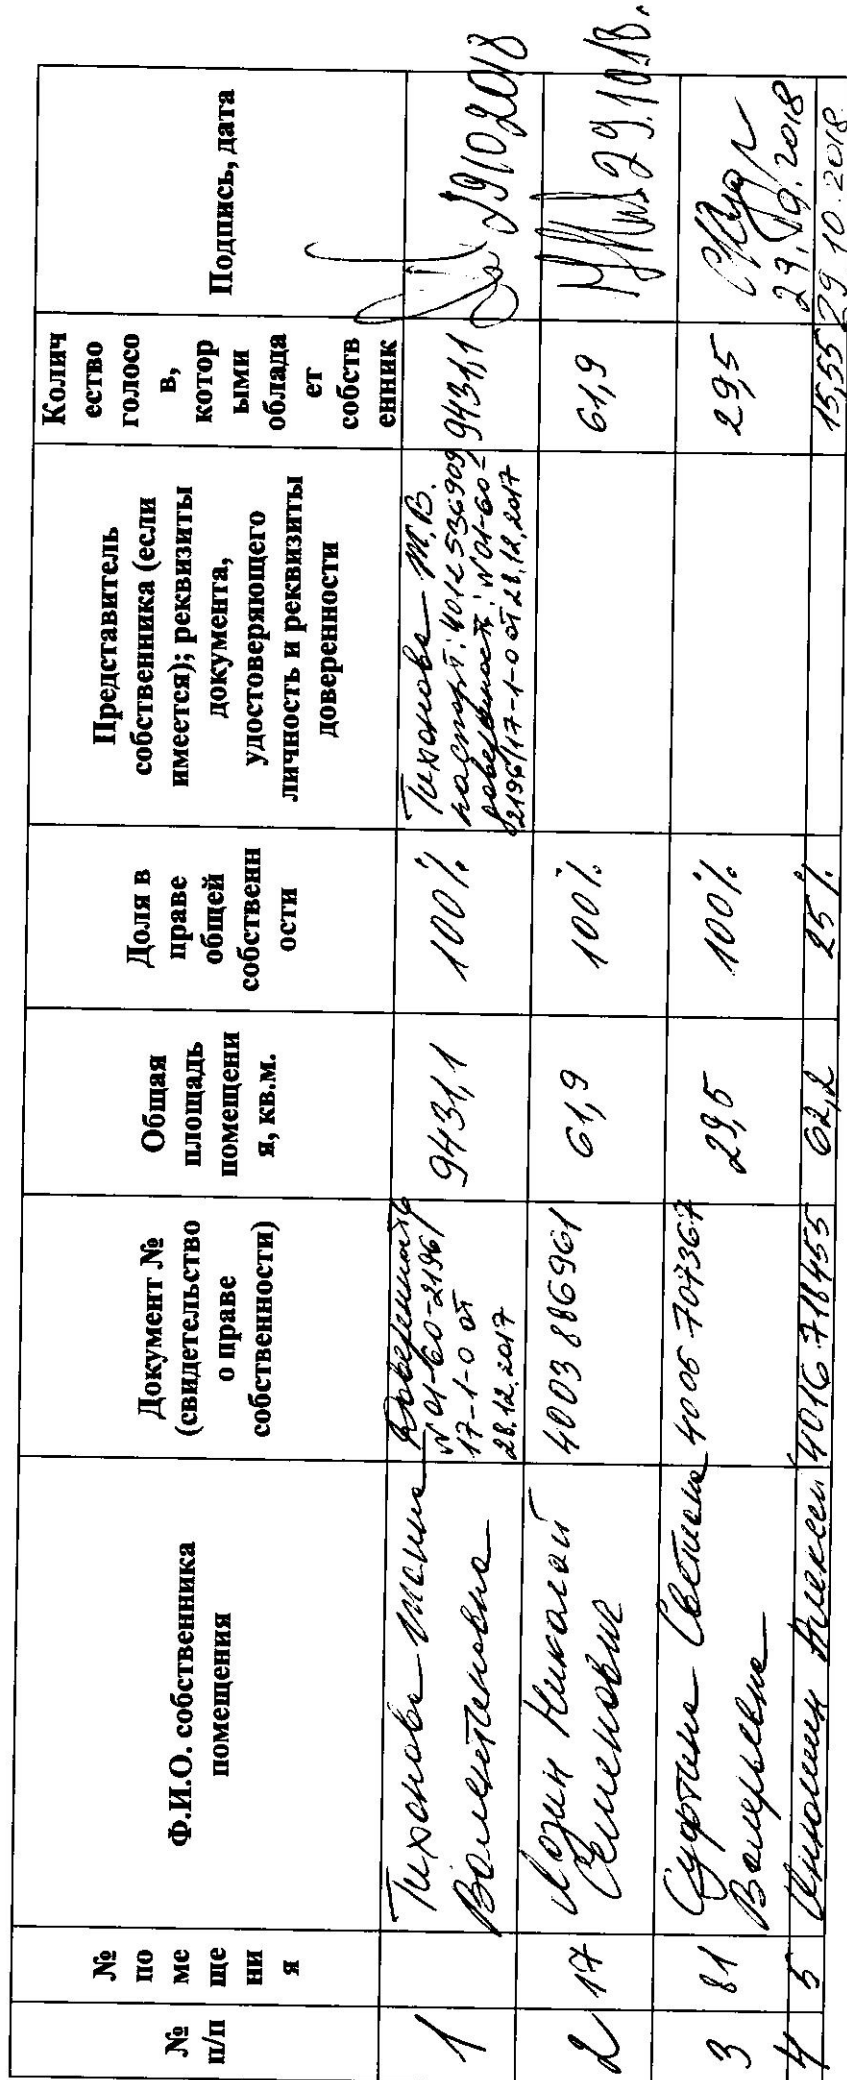 № п/п
№ по ме ще ни я
Ф.И.О. собственника помещения
Документ № (свидетельство о праве собственности)
Общая площадь помещени я, кв.м.
Доля в праве общей собственн ости
Представитель собственника (если имеется); реквизиты документа, удостоверяющего личность и реквизиты доверенности
Колич ество голосо в, котор ыми облада ет собств енник
Подпись, дата
1
Тихонова
Валентиновна
Доверенность
№ 01-60-2196/
17-1-0 от
28.12.2017
9431,1
100%
Тихонова М.В.
паспорт: 4012 536909
доверенность: №01-60-
2196/17-1-0 от 28.12.2017
9431,1
29102018
2
17
Лозин Николай
Семенович
4003 886961
61,9
100%
61,9
29.10.18.
3
81
Суфтина Светлана
Валерьевна
4006 707367
29,5
100%
29,5
29.10.2018
4
5
Алексей
4016 718455
62,2
25%
15,55
29.10.2018